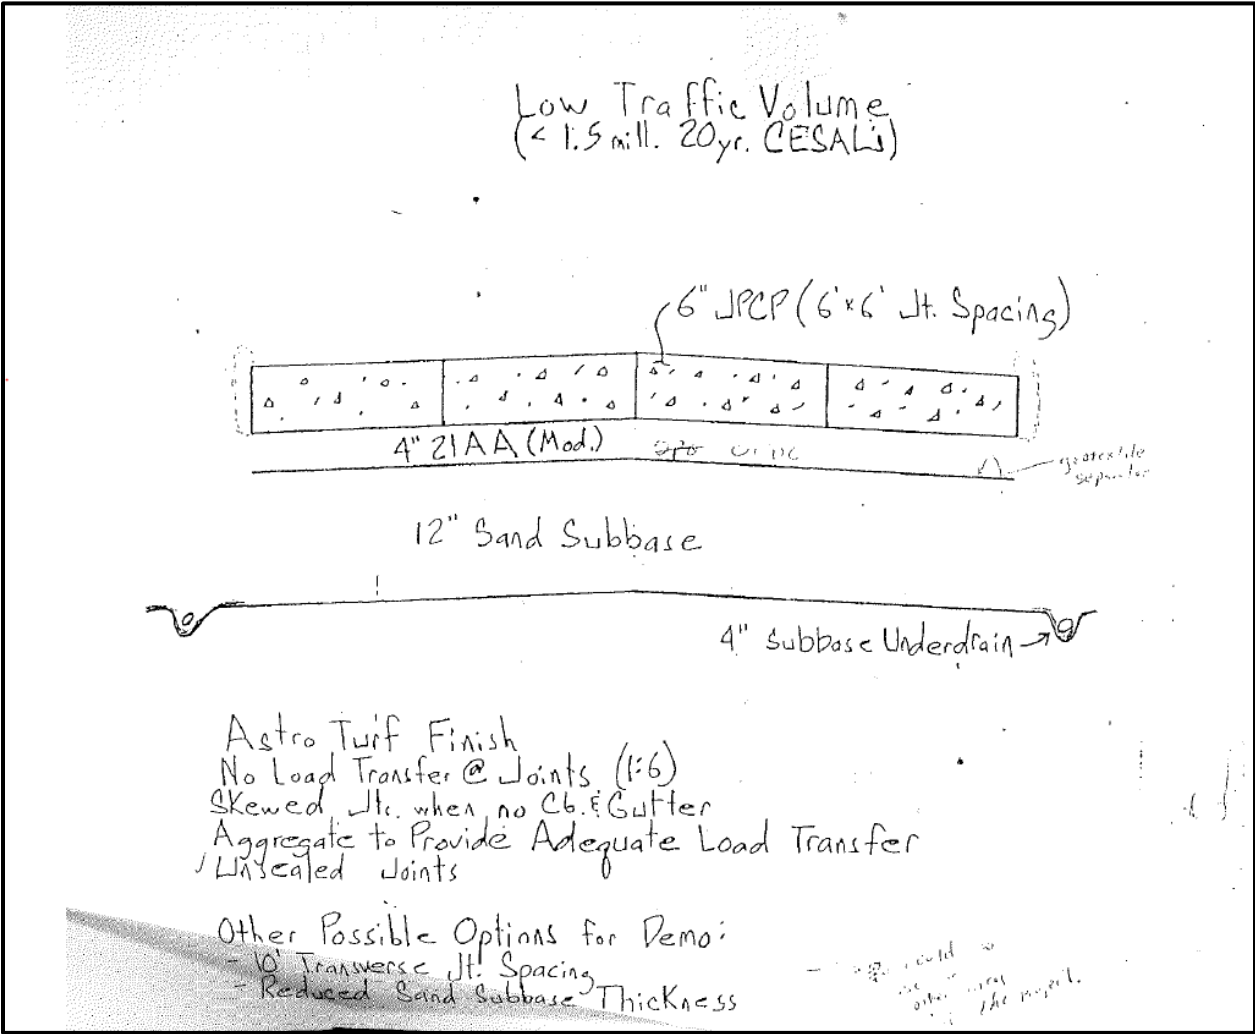 Low Traffic Volume
(< 1.5 mill. 20yr. CESAL's)
6" JPCP (6'x6' Jt. Spacing)
4" 21AA (Mod.)
geotextile
separator
12" Sand Subbase
4" Subbase Underdrain
Astro Turf Finish
No Load Transfer @ Joints (1:6)
Skewed Jts. when no Cb. & Gutter
Aggregate to Provide Adequate Load Transfer
Unsealed Joints
Other Possible Options for Demo:
- 10' Transverse Jt. Spacing
- Reduced Sand Subbase Thickness
could
other
the project.